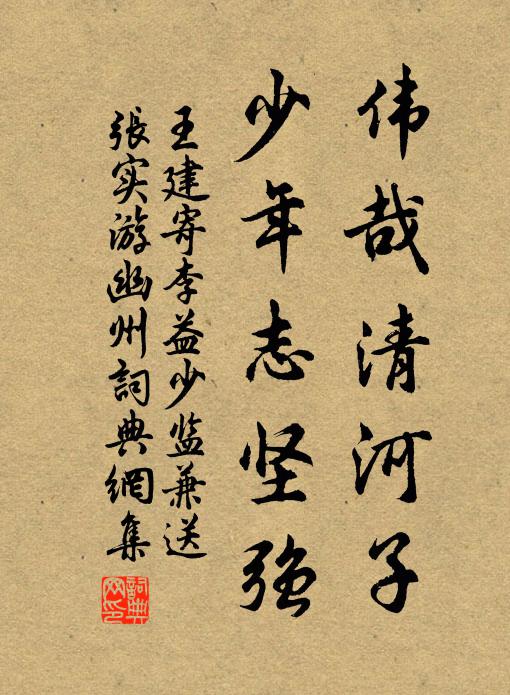 伟哉清河子
少年志坚强
王建寄李益少监兼送
張实游幽州詞典網集
詞典
网印